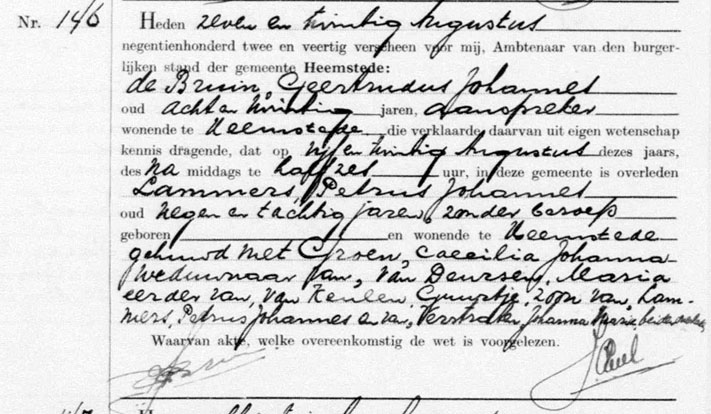 Nr. 146
Heden zeven en twintig Augustus
negentienhonderd twee en veertig verscheen voor mij, Ambtenaar van den burger-
lijken stand der gemeente Heemstede:
de Bruin, Geertrudus Johannes
oud acht en twintig jaren, aanspreker
wonende te Heemstede die verklaarde daarvan uit eigen wetenschap
kennis dragende, dat op vijf en twintig Augustus dezes jaars,
des na middags te half zes uur, in deze gemeente is overleden
Lammers, Petrus Johannes
oud negen en tachtig jaren, zonder beroep
geboren en wonende te Heemstede
gehuwd met Groen, Caecilia Johanna
weduwnaar van, van Deursen, Maria
eerder van, van Keulen, Guurtje, zoon van, Lam-
mers, Petrus Johannes en van, Verstraten, Johanna Maria, beiden overleden
Waarvan akte, welke overeenkomstig de wet is voorgelezen.